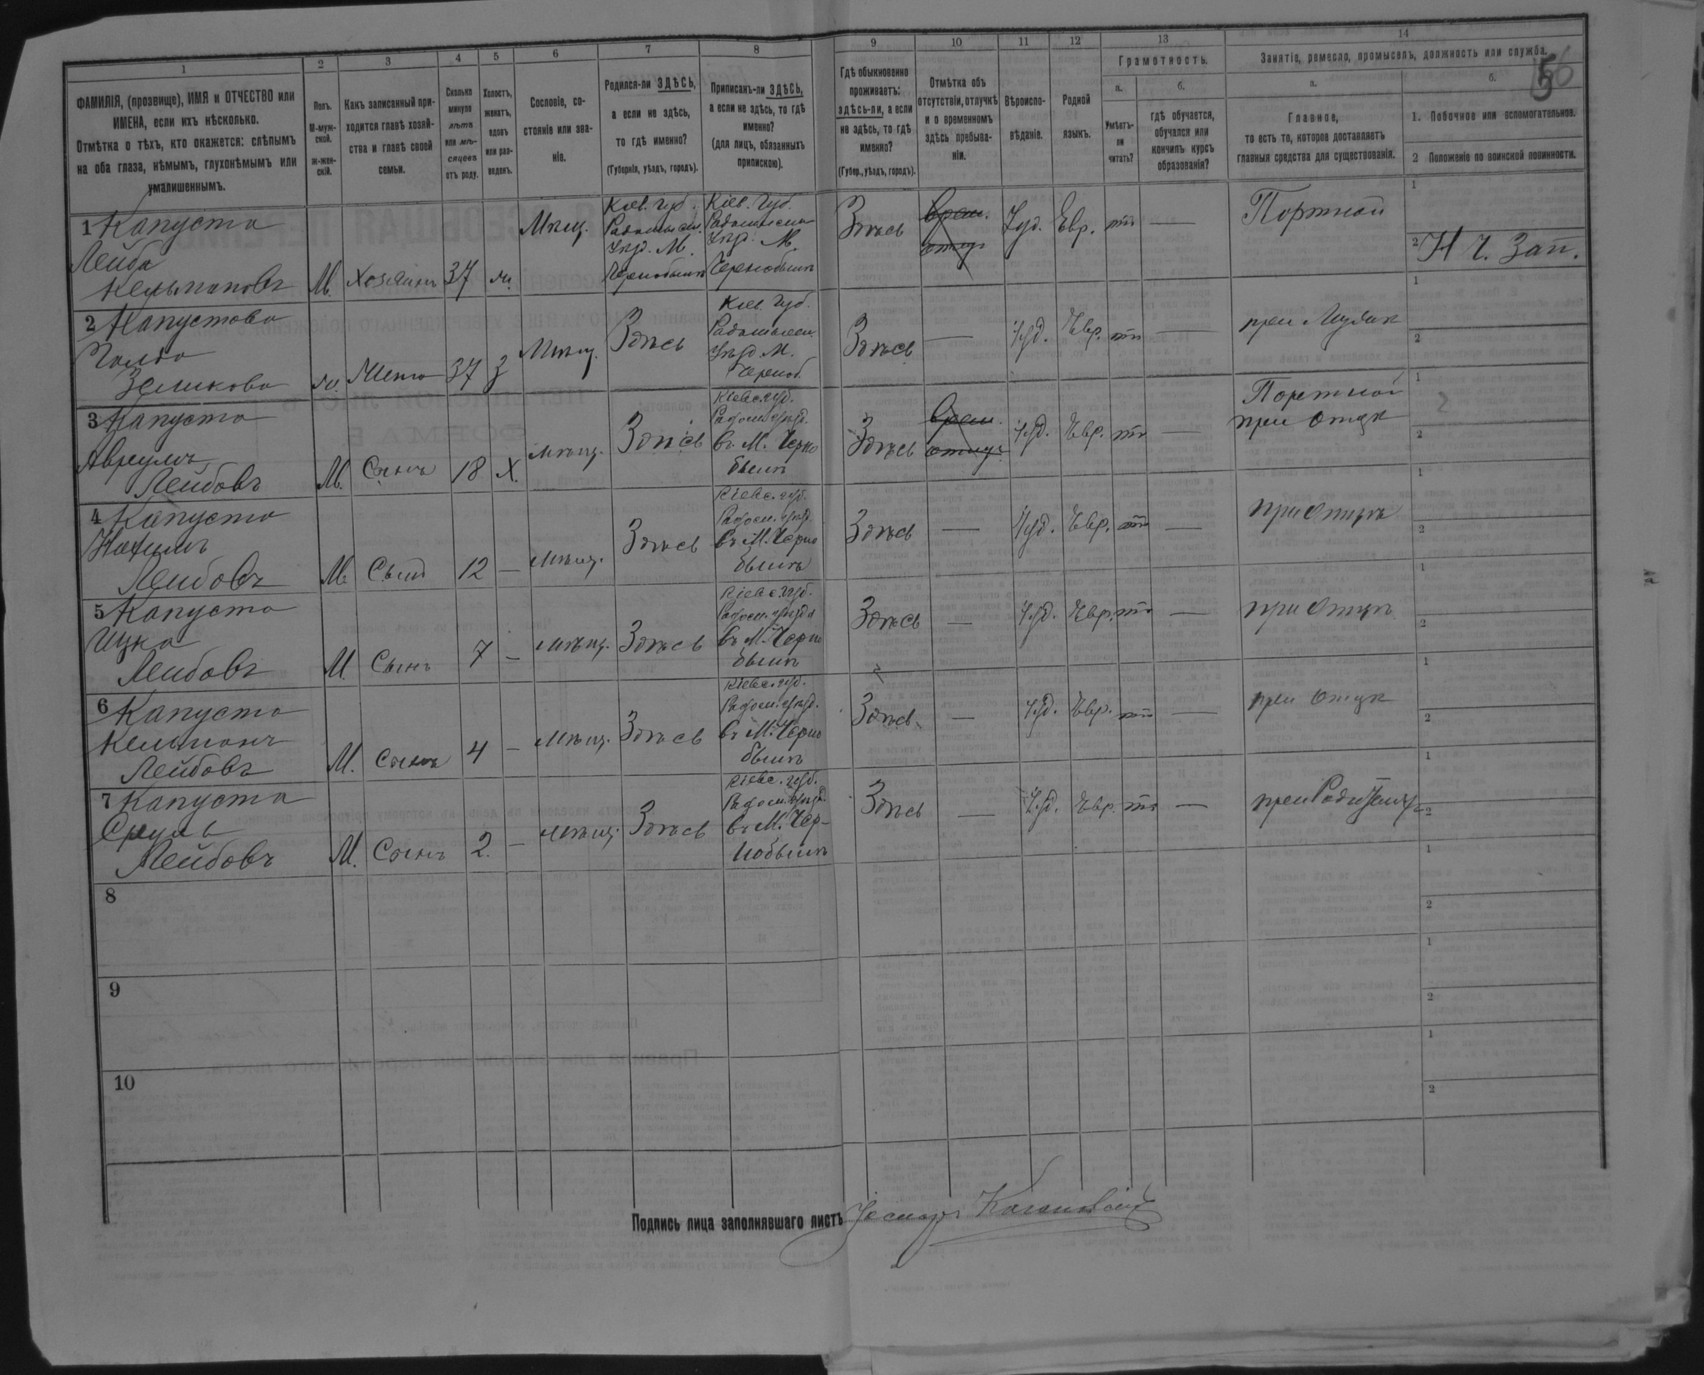 1 2 3 4 5 6 7 8 9 10 11 12 13 14
ФАМИЛІЯ, (прозвище), ИМЯ и ОТЧЕСТВО или
ИМЕНА, если ихъ нѣсколько.
Отмѣтка о тѣхъ, кто окажется: слѣпымъ
на оба глаза, нѣмымъ, глухонѣмымъ или
умалишеннымъ.
Полъ.
М-муж-
ской.
Ж-жен-
скій.
Какъ записанный при-
ходится главѣ хозяй-
ства и главѣ своей
семьи.
Сколько
минуло
лѣтъ
или мѣ-
сяцевъ
отъ роду.
Холостъ,
женатъ,
вдовъ
или раз-
веденъ.
Сословіе, со-
стояніе или зва-
ніе.
Родился-ли ЗДѢСЬ,
а если не здѣсь,
то гдѣ именно?
(Губернія, уѣздъ, городъ).
Приписанъ-ли ЗДѢСЬ,
а если не здѣсь, то гдѣ
именно?
(для лицъ, обязанныхъ
припискою).
Гдѣ обыкновенно
проживаетъ:
здѣсь-ли, а если
не здѣсь, то гдѣ
именно?
(Губер., уѣздъ, городъ).
Отмѣтка объ
отсутствіи, отлучкѣ
и о временномъ
здѣсь пребыва-
ніи.
Вѣроиспо-
вѣданіе.
Родной
языкъ.
Грамотность.
а.
Умѣетъ-
ли
читать?
б.
гдѣ обучается,
обучался или
кончилъ курсъ
образованія?
Занятіе, ремесло, промыселъ, должность или служба.
а.
Главное,
то есть то, которое доставляетъ
главныя средства для существованія.
б.
1. Побочное или вспомогательное.
2 Положеніе по воинской повинности.
1 Капуста
Лейба
Кельмановъ М. Хозяинъ 37 ж. Мѣщ. Кіев. Губ. Радомысл. Уѣзд. М. Чернобыль Кіев. Губ. Радомысл. Уѣзд. М. Чернобыль Здѣсь врем. отлуч. Іуд. Евр. Портной
2 Н Ч. Зап.
2 Капустова
Зеликова ж. Жена 37 З Мѣщ. Здѣсь Кіев. Губ. Радомысл. Уѣзд. М. Черноб. Здѣсь — Іуд. Евр. — при Мужѣ
3 Капуста
Аврумъ
Лейбовъ М. Сынъ 18 Х. мѣщ. Здѣсь Кіевс. губ. Радом. уѣзд. въ М. Черно быль Здѣсь врем. отлуч. Іуд. Евр. — Портной при отцѣ
4 Капуста
Нахимъ
Лейбовъ М. Сынъ 12 — мѣщ. Здѣсь Кіевс. губ. Радом. уѣзд. въ М. Черно быль Здѣсь — Іуд. Евр. — при отцѣ
5 Капуста
Ицко
Лейбовъ М Сынъ 7 — мѣщ. Здѣсь Кіевс. губ. Радом. уѣзда въ М. Черно былъ Здѣсь — Іуд. Евр. — при отцѣ
6 Капуста
Кельманъ
Лейбовъ М. Сынъ 4 — мѣщ. Здѣсь Кіевс. губ. Радом. уѣзд. въ М. Черно быль Здѣсь — Іуд. Евр. — при отцѣ
7 Капуста
Сруль
Лейбовъ М. Сынъ 2. — мѣщ. Здѣсь Кіевс. губ. Радом. уѣзд. въ М. Чер- нобыль Здѣсь — Іуд. Евр. —
8
9
10
Подпись лица заполнявшаго листъ